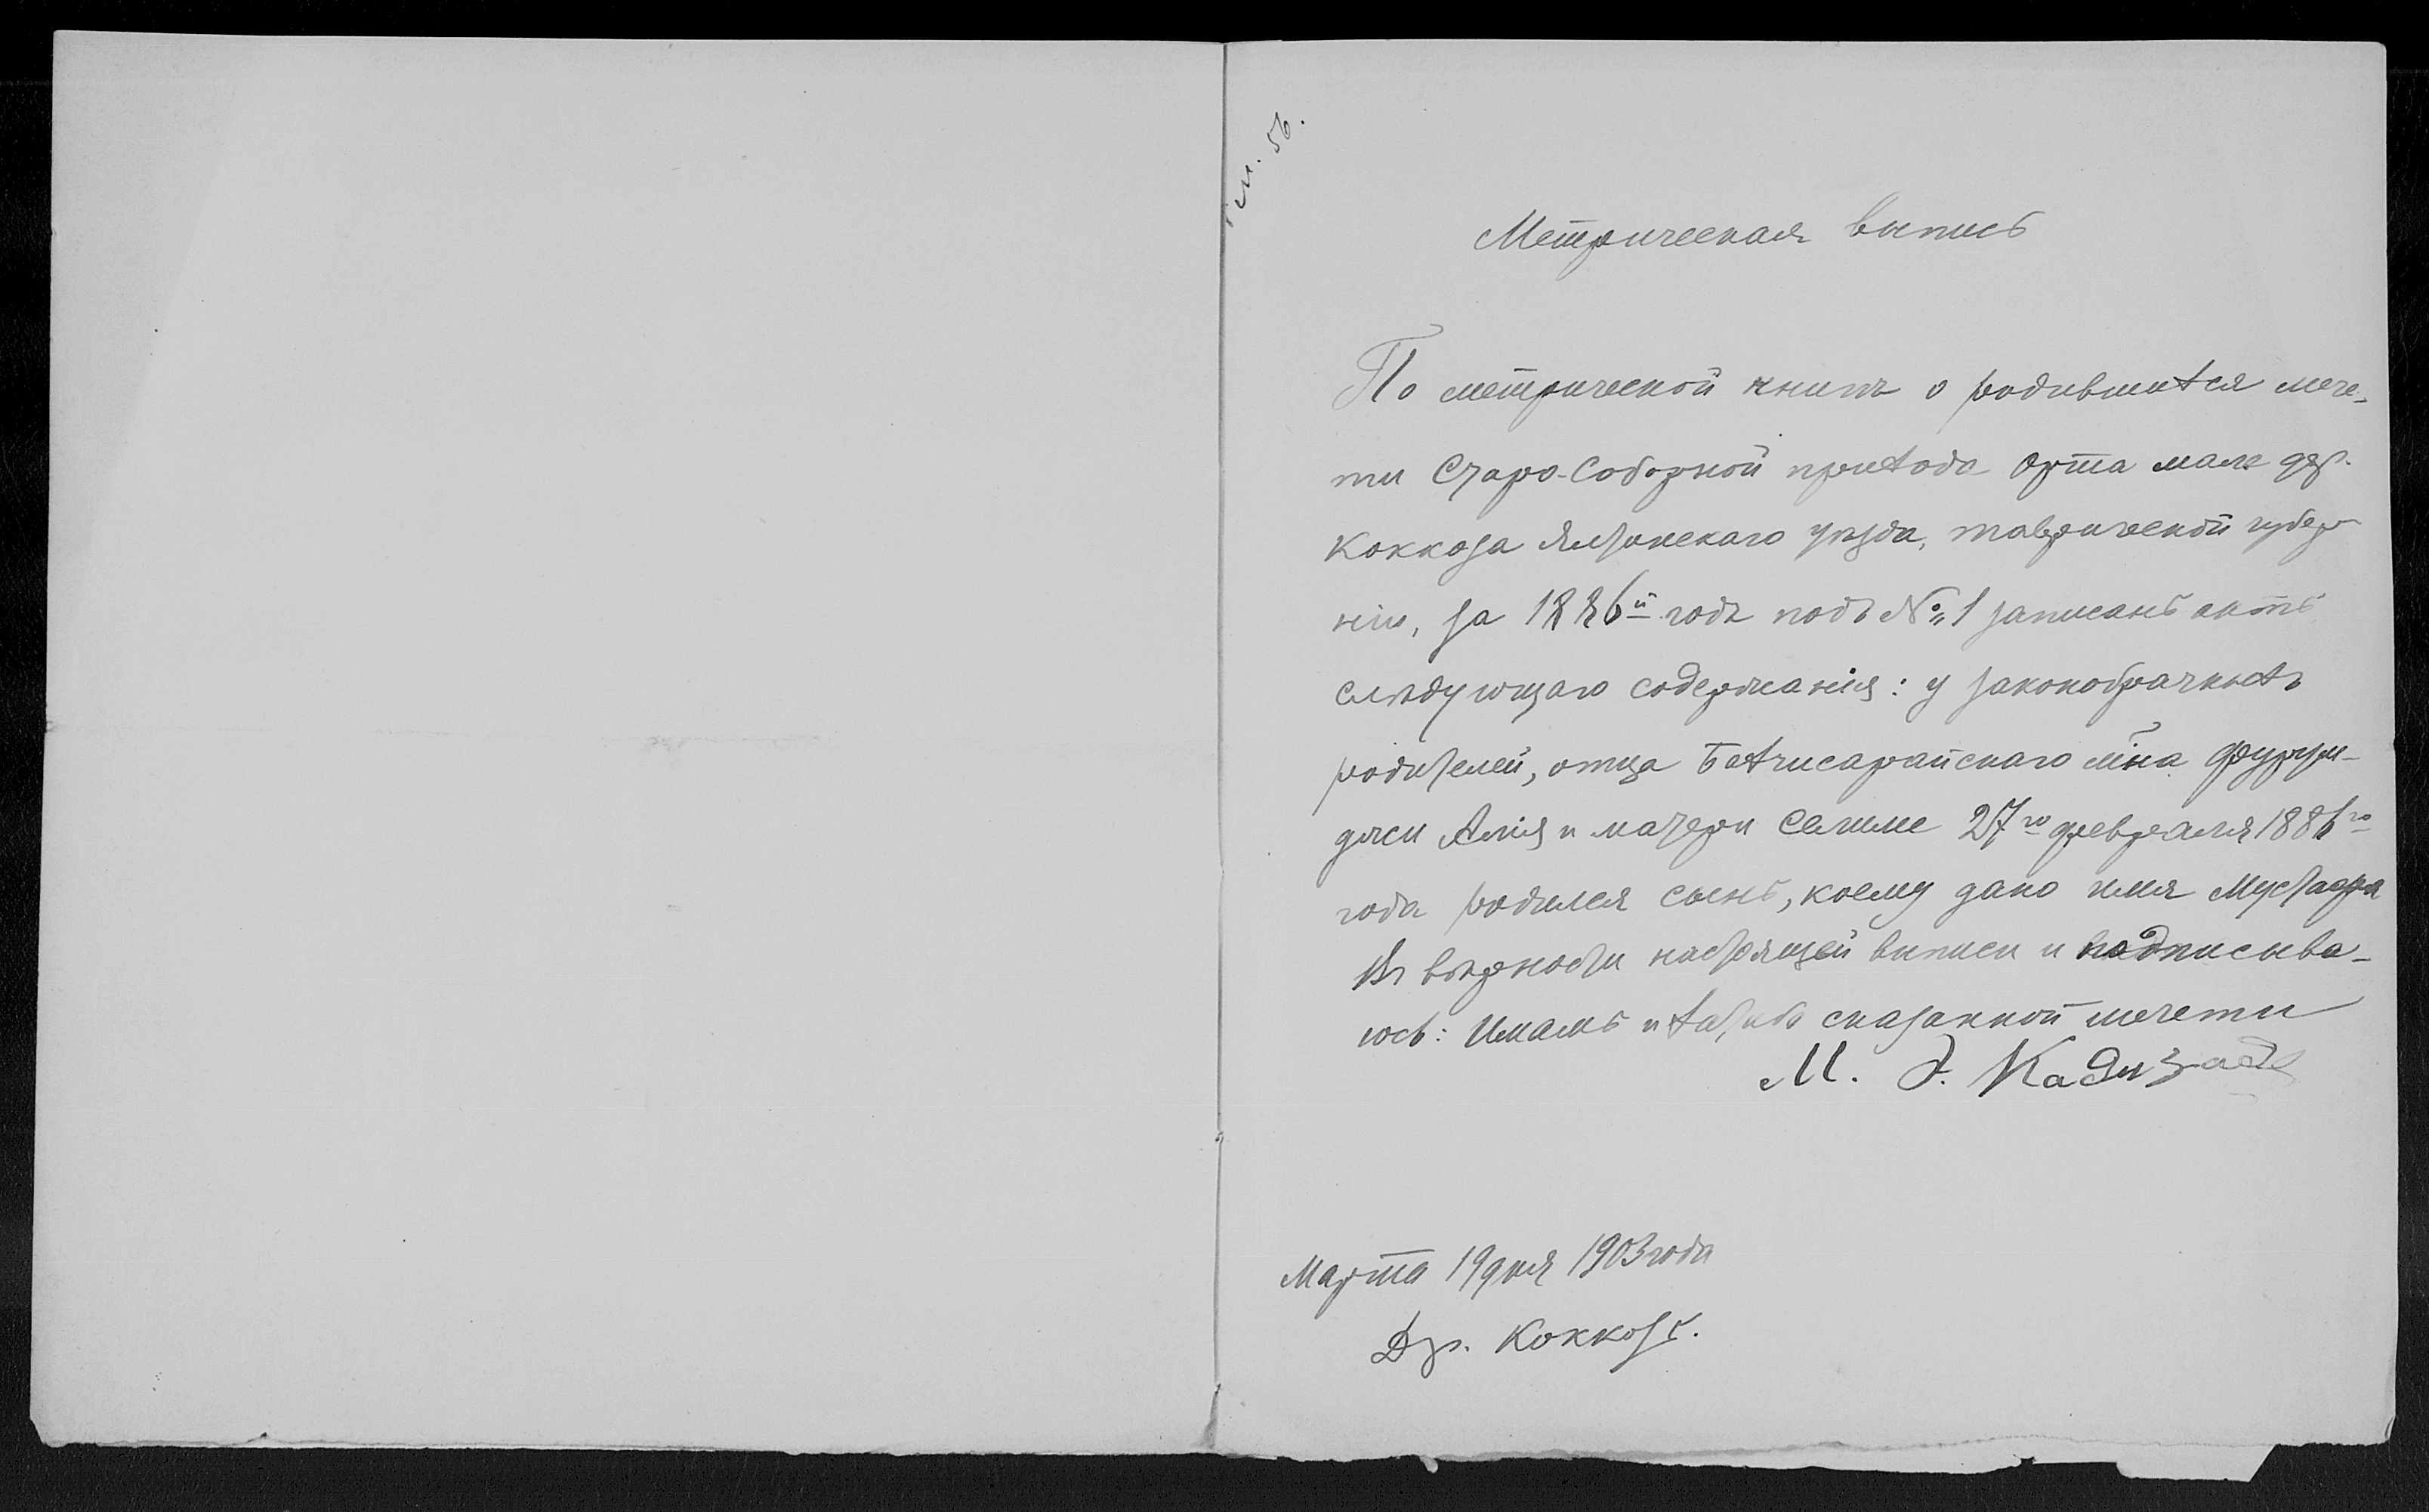 см. 56.
Метрическая выпись
По метрической книгѣ о родившихся мече-
ти Старо-Соборной прихода Орта мале дер.
Коккоза Ялтинскаго уѣзда, Таврической губер
ніи, за 1886й годъ подъ № 1 записанъ актъ
слѣдующаго содержанія: у законобрачныхъ
родителей, отца Бахчисарайскаго мѣ-на
джи Алія и матери Селиме 27го февраля 1886го
года родился сынъ, коему дано имя Мустафа
Въ вѣрности настоящей выписи и подписыва-
юсь: Имамъ и хатибъ сказанной мечети
М. Э. Кадизаде
Марта 19 дня 1903 года
Др. Коккозъ.